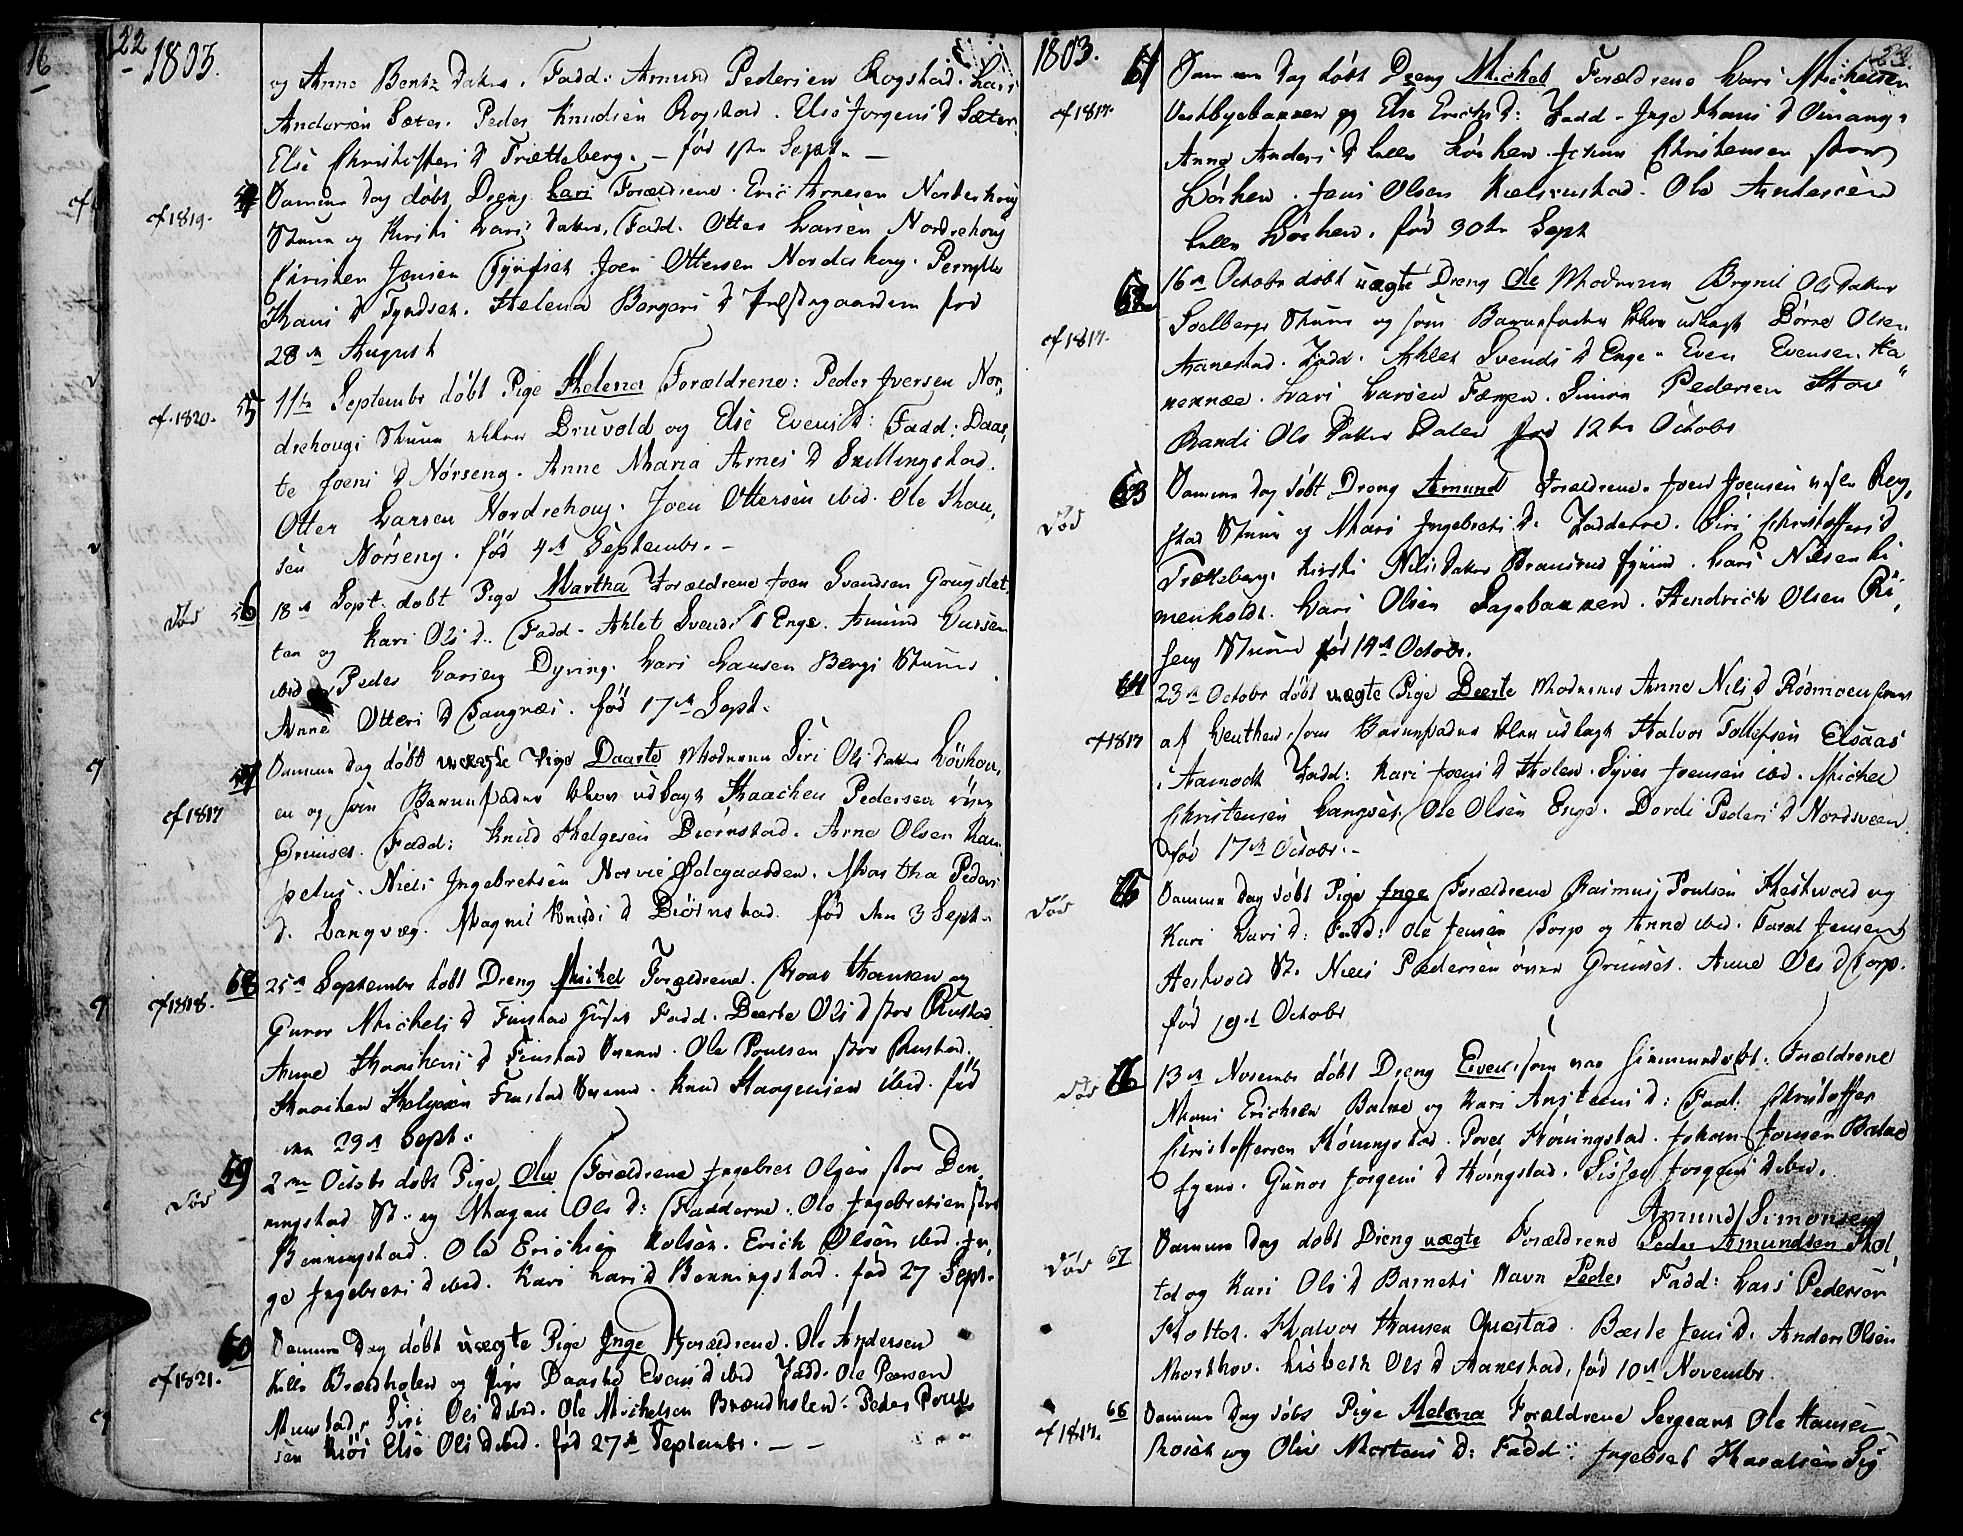 16
22
1803.
og Anne Bentz Datter. Fadd: Amund Pedersen Rogstad. Lars
Andersen Sæter. Peder Knudsen Rogstad. Else Jørgens D Sæter
Else Christoffers D Trætteberg. - fød 1ste Sept. -
cf 1819.
54
Samme Dag døbt Dreng Lars Forældrene. Eric Arnesen Norderhoug
Stuen og Kirsti Lars Datter, Fadd. Otter Larsen Nordrehoug
Christen Jensen Tyndset Joen Ottersen Norderhoug. Pernylle
Hans D Tyndset. Helena Borgers D Præstegaarden fød
28de August
cf. 1820.
55
11te Septembr døbt Pige Helena Forældrene: Peder Iversen Nor-
drehougs Stuen eller Druvold og Else Evens D: Fadd: Daar-
te Joens D Nørseng. Anne Maria Arnes D Snillingstad.
Otter Larsen Nordrehoug. Joen Ottersen ibid. Ole Han-
sen Nørseng. fød 4de Septembr. -
død
56
18de Sept. døbt Pige Martha Forældrene Joen Svendsen Gougslet-
ten og Kari Ols D. Fadd - Ahlet Svends D Enge. Amund Larsen
ibid Peder Larsen Dyring. Lars Hansen Bergs Stuen
Anne Otters D Fangnæs. fød 17de Sept.
cf 1817
57
Samme Dag døbt uægte Pige Daarte Moderen Siri Ols Datter Løvhou-
en og som Barnefader blev udlagt Haachen Pedersen øvre
Grimset. Fadd: Knud Helgesen Biørnstad. Arne Olsen Kam-
petug. Niels Ingebretsen Norvie Ødegaarden. Martha Peders
D. Langvæg. Magnil Knuds D Biørnstad. fød den 3 Sept.
cf 1818.
58
25de Septembr døbt Dreng Michel Forældrene. Roar Hansen og
Guror Michels D Finstad Huset Fadd. Beerte Ols D stor Rustad
Anne Haachens D Finstad Svenn. Ole Poulsen stor Rustad.
Haachen Helgesen Finstad Svenn. Knud Haagensen ibid. fød
den 23de Sept.
død
59
2den Octobr døbt Pige Olea Forældrene Ingebret Olsen stor Ben-
ningstad St. og Magni Ols D: Fadderne. Ole Ingebretsen stor
Benningstad. Ole Erichsen Kolsen. Erich Olsen ibid. In-
ge Ingebrets D ibid. Kari Lars D Benningstad. fød 27 Sept.
cf 1821.
60
Samme Dag døbt uægte Pige Inge Forældrene. Ole Andersen
lille Brændholen og Pige Daarte Evens D ibid Fadd. Ole Larsen
Munstad, Siri Ols D ibid. Ole Michelsen Brændholen. Peder Poul-
sen Kiøs Else Ols D ibid. fød 27de Septembr. - -
1803.
23.
61
cf 1817.
Samme Dag døbt Dreng Michel Forældrene Lars Michelsen
Vestbyebakken og Else Erichs D: Fadd - Inge Hans D Omang.
Anne Anders D lille Løcken Johan Christensen stor
Løchen. Jens Olsen Kielsenstad. Ole Andersen
lille Løchen. fød 30te Sept
62
cf 1817.
16de Octobr døbt uægte Dreng Ole Moderen Brynil Ols Datter
Soelbergs Stuen og som Barnefader blev udlagt Børre Olsen
Aanestad. Fadd. Ahlet Svends D Enge. Even Evensen Aa-
nexnæe. Lars Larsen Færgen. Simen Pedersen Hov
Randi Ols Datter Dalen fød 12te Octobr
63
død
Samme Dag døbt Dreng Amund Forældrene. Joen Joensen
stad Stuen og Mari Ingebrets D. Fadderne. Siri Christoffers D
Trætteberg. Kirsti Nils Datter Lars Nilsen Li-
menholdt. Lars Olsen Sagebakken. Hendrich Olsen Ri-
seng Stuen fød 14de Octobr.
64
cf 1817
23de Octobr døbt uægte Pige Beerte Moderens Anne Nils D Rødmoen
af Leuthen, som Barnefader blev udlagt Halvor Tollefsen Elsaas
i Aamodt Fadd: Kari Joens D Holen. Syver Joensen ibid. Michel
Christensen Langset. Ole Olsen Enge. Dordi Peders D Nordsveen.
fød 17de Octobr. -
65
død
Samme Dag døbt Pige Inge Forældrene Rasmus Poulsen Hestvold og
Kari Lars D: Fadd: Ole Jensen Torp og Anne ibid. Taral Jensen
Hestvold St. Niels Pedersen øvre Grimset. Anne Ols D Torp.
fød 19de Octobr
66
død
13de Novembr døbt Dreng Even, som var hiemmedøbt. Forældrene
Mons Erichsen Balne og Kari Anstens D: Fadd. Christoffer
Christoffersen Høningstad. Povel Høningstad. Johan Jonsen Balne
Egene. Guror Jørgens D Høingstad. Sidsel Jørgens D ibid.
67
død
Amund Simonsen
Samme Dag døbt Dreng uægte Forældrene Peder Amundsen Skol-
tet og Kari Ols D Barnets Navn Peder Fadd: Lars Pedersen
Skoltet. Halvor Hansen Qvæstad. Beerte Jens D. Anders Olsen
Morthov. Lisbeth Ols D Aanestad, fød 10de Novembr.
68
cf 1817.
Samme Dag døbt Pige Helena Forældrene Sergeant Ole Hansen
Roset og Olea Mortens D: Fadd: Ingebret Haralsen Sig